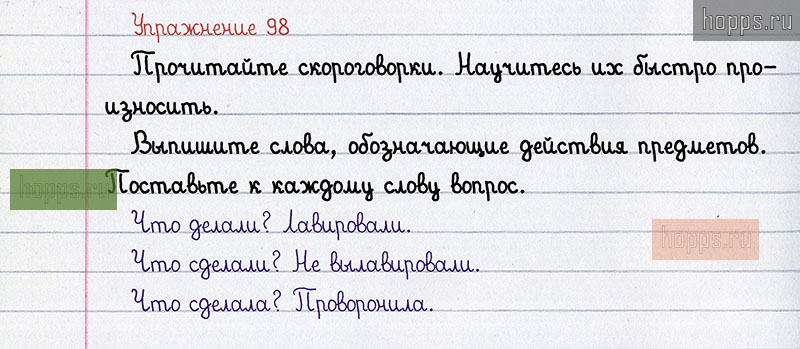 hopps.ru
Упражнение 98
Прочитайте скороговорки. Научитесь их быстро про-
износить.
Выпишите слова, обозначающие действия предметов.
hopps.ru
Поставьте к каждому слову вопрос.
Что делали? Лавировали.
hopps.ru
Что сделали? Не вылавировали.
Что сделала? Проворонила.